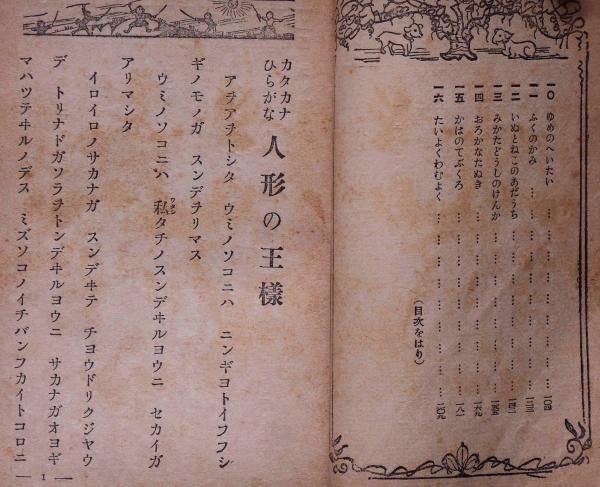 一〇 ゆめのへいたい … … … … … … 一〇四
一一 ふくのかみ … … … … … … … 一二三
一二 いぬとねこのあだうち … … … … 一四一
一三 みかたどうしのけんか … … … … 一五三
一四 おろかなたぬき … … … … … … 一六九
一五 かはのてぶくろ … … … … … … 一八一
一六 たいよくわむよく … … … … … 二〇九
(目次をはり)
カタカナ
ひらがな
人形の王様
アヲアヲトシタ ウミノソコニハ ニンギヨトイフフシ
ギノモノガ スンデヲリマス
ウミノソコニハ 私タチノスンデヰルヨウニ セカイガ
ワタシ
アリマシタ
イロイロノサカナガ スンデヰテ チヨウドリクジヤウ
デ トリナドガソラヲトンデヰルヨウニ サカナガオヨギ
マハツテヰルノデス ミズソコノイチバンフカイトコロニ
— 1 —